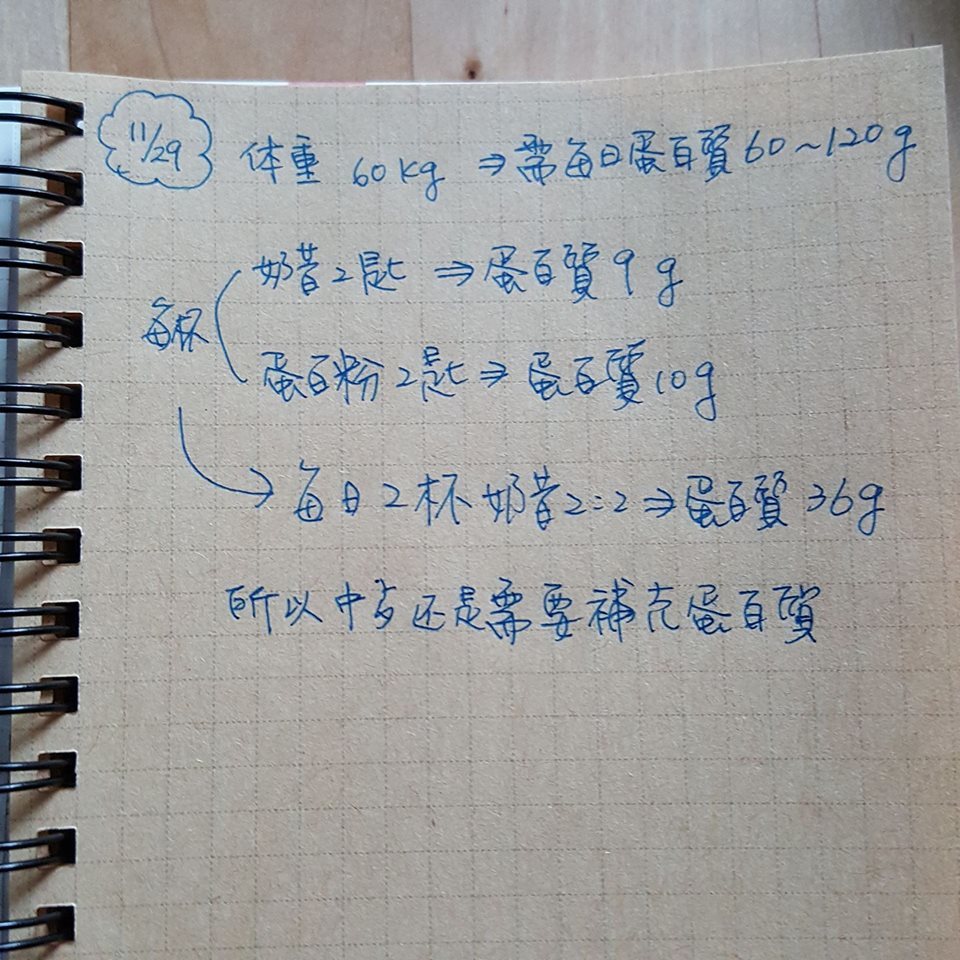 11/29
体重 60kg ⇒需每日蛋白質60~120g
奶昔2匙 ⇒蛋白質9g
每杯
蛋白粉2匙⇒蛋白質10g
→每日2杯奶昔2:2⇒蛋白質36g
所以中歺还是需要補充蛋白質